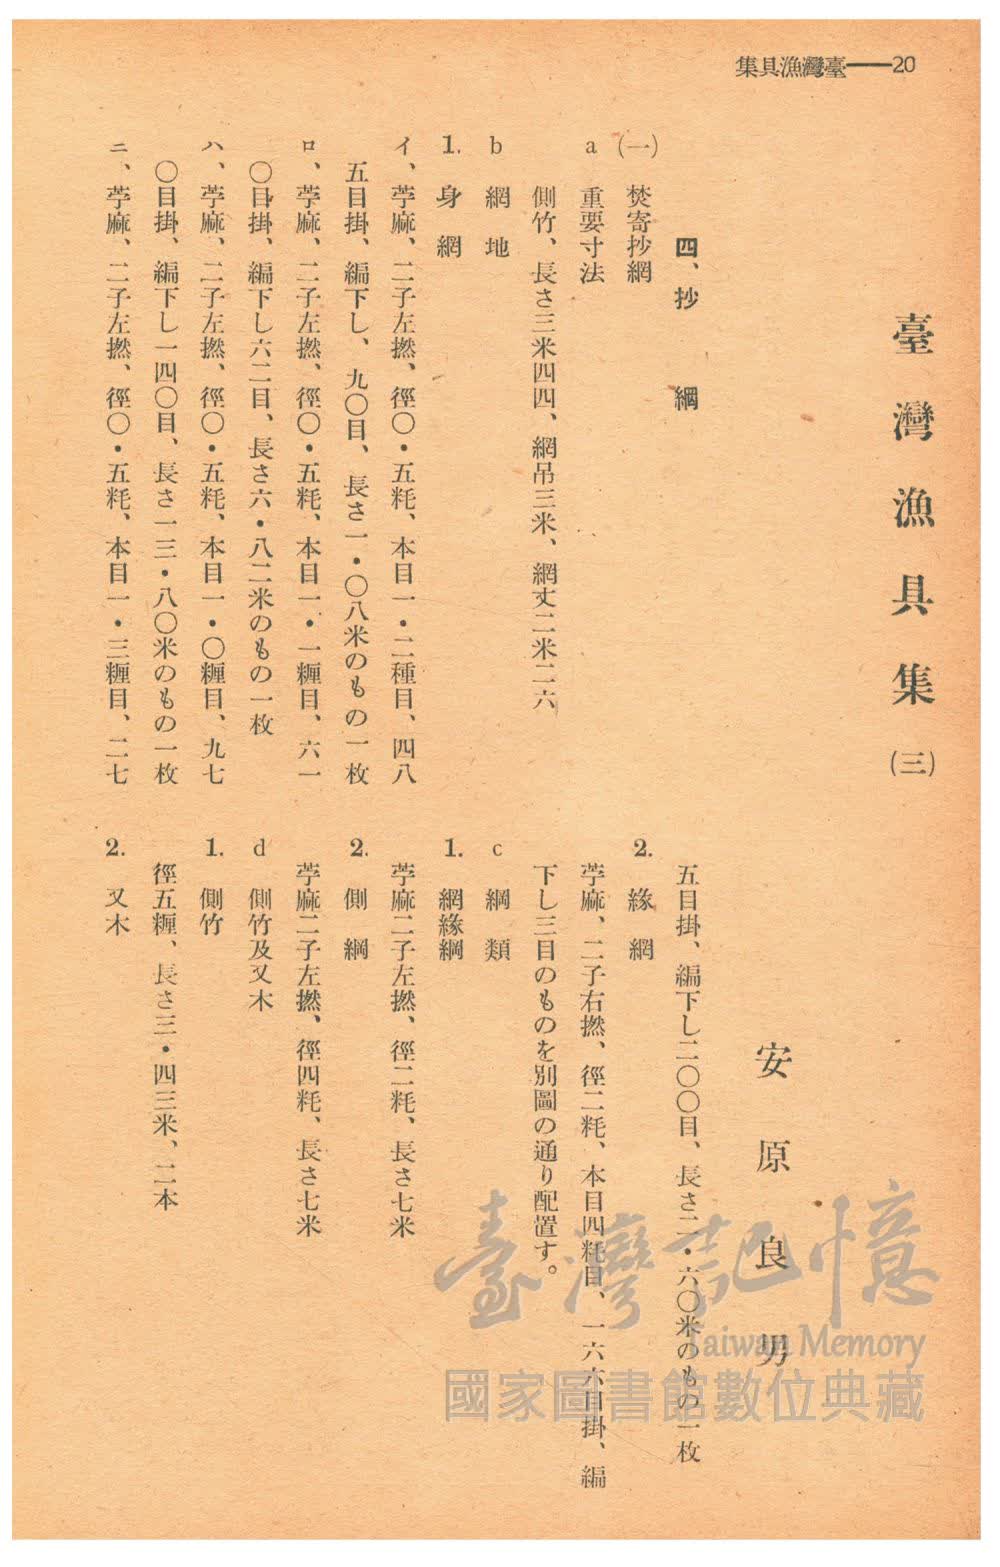 集具漁灣臺——20
臺灣漁具集(三)
安原良男
四、抄網
(一) 焚寄抄網
a 重要寸法
側竹、長さ三米四四、網吊三米、網丈二米二六
b 網地
1. 身網
イ、苧麻、二子左撚、徑〇・五粍、本目一・二種目、四八
五目掛、編下し、九〇目、長さ一・〇八米のもの一枚
ロ、苧麻、二子左撚、徑〇・五粍、本目一・一糎目、六一
〇目掛、編下し六二目、長さ六・八二米のもの一枚
ハ、苧麻、二子左撚、徑〇・五粍、本目一・〇糎目、九七
〇目掛、編下し一四〇目、長さ一三・八〇米のもの一枚
ニ、苧麻、二子左撚、徑〇・五粍、本目一・三糎目、二七
五目掛、編下し二〇〇目、長さ二・六〇米のもの一枚
2. 緣網
苧麻、二子右撚、徑二粍、本目四粍目、一六六目掛、編
下し三目のものを別圖の通り配置す。
c 綱類
1. 網緣綱
苧麻二子左撚、徑二粍、長さ七米
2. 側綱
苧麻二子左撚、徑四粍、長さ七米
d 側竹及又木
1. 側竹
徑五糎、長さ三・四三米、二本
2. 又木
臺灣記憶
Taiwan Memory
國家圖書館數位典藏